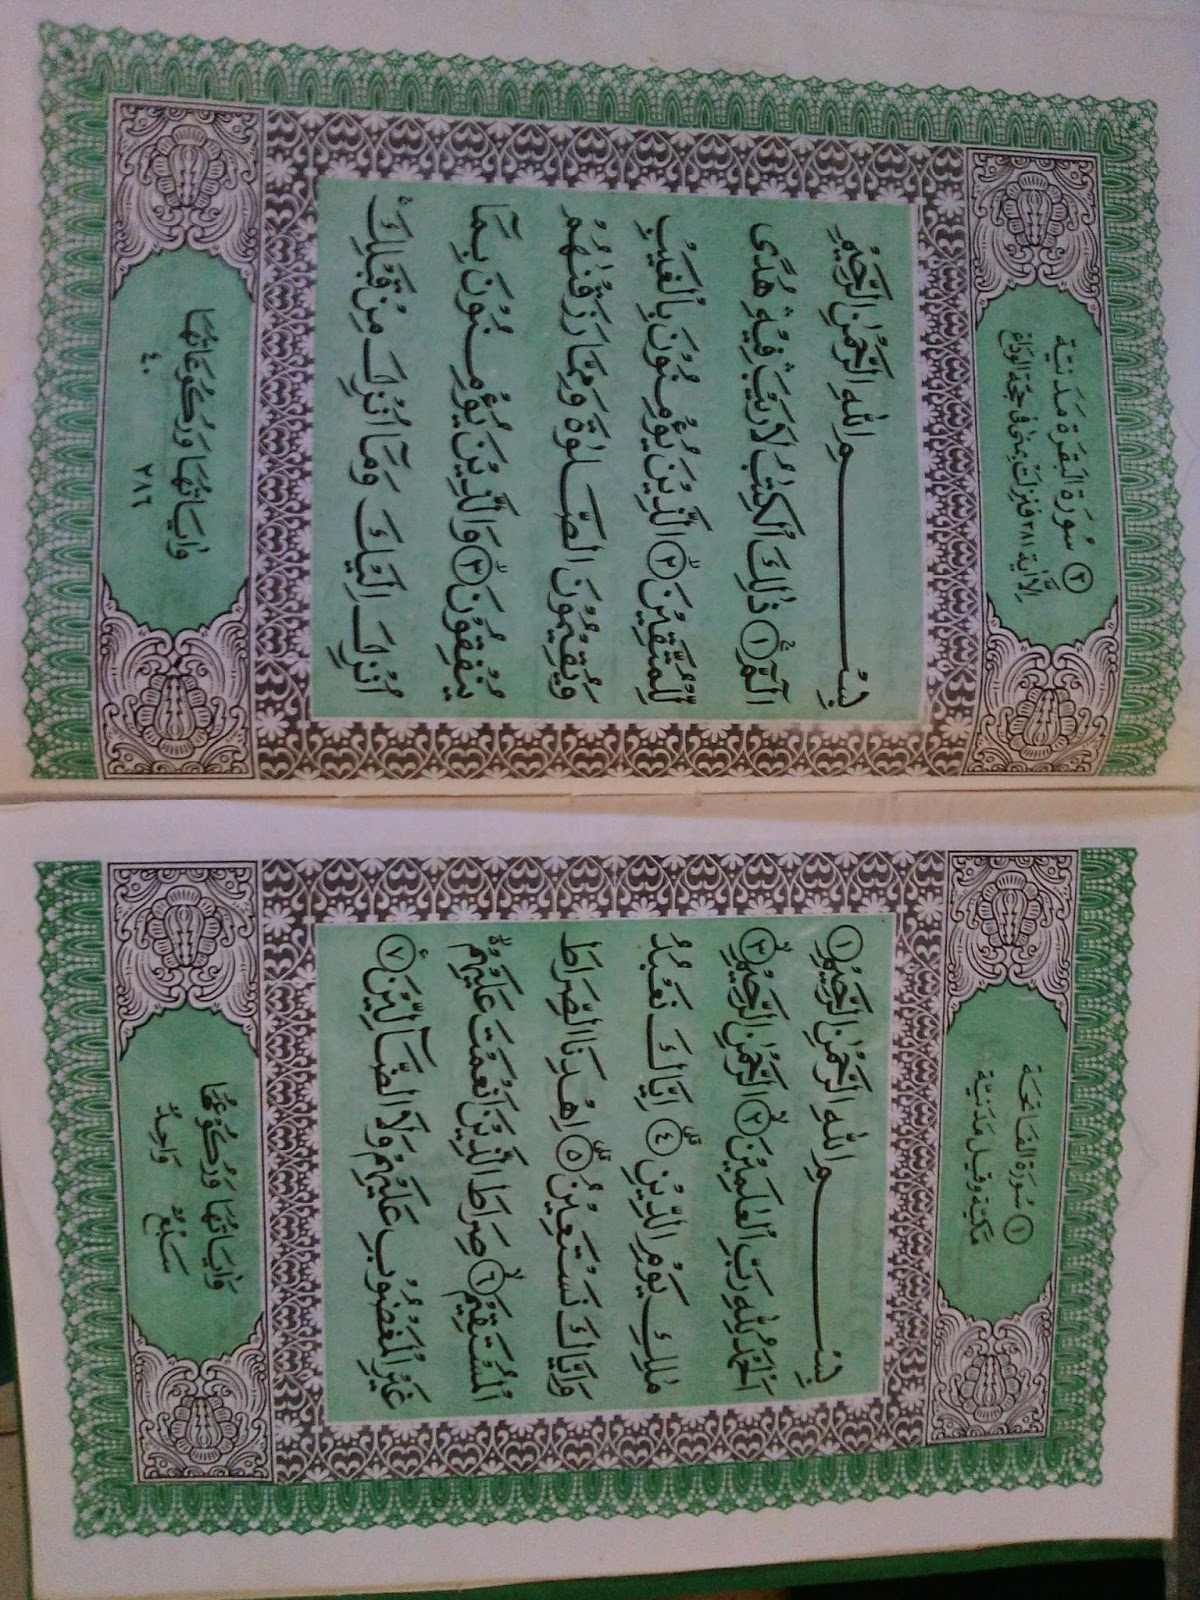 ١ سُوْرَةُ الْفَاتِحَة
مَكِّيَّة وَقِيلَ مَدَنِيَّة
بِسْــــــــمِ اللهِ الرَّحْمٰنِ الرَّحِيْمِ ١
اَلْحَمْدُ لِلهِ رَبِّ الْعٰلَمِيْنَ ٢ الرَّحْمٰنِ الرَّحِيْمِ ٣
مٰلِكِ يَوْمِ الدِّيْنِ ٤ اِيَّاكَ نَعْبُدُ
وَاِيَّاكَ نَسْتَعِيْنُ ٥ اِهْدِنَا الصِّرَاطَ
الْمُسْتَقِيْمَ ٦ صِرَاطَ الَّذِيْنَ اَنْعَمْتَ عَلَيْهِمْ
غَيْرِ الْمَغْضُوْبِ عَلَيْهِمْ وَلَا الضَّآلِّيْنَ ٧
وَاٰيَاتُهَا وَرُكُوْعُهَا
سَبْعٌ وَاحِدٌ
٢ سُوْرَةُ الْبَقَرَة مَدَنِيَّة
اِلَّا اٰيَة ٢٨١ فَنَزَلَتْ بِمِنًى فِى حَجَّةِ الْوَدَاعِ
بِسْــــــــمِ اللهِ الرَّحْمٰنِ الرَّحِيْمِ
الٓمّٓ ١ ذٰلِكَ الْكِتٰبُ لَا رَيْبَ فِيْهِ هُدًى
لِّلْمُتَّقِيْنَ ٢ الَّذِيْنَ يُؤْمِنُوْنَ بِالْغَيْبِ
وَيُقِيْمُوْنَ الصَّلٰوةَ وَمِمَّا رَزَقْنٰهُمْ
يُنْفِقُوْنَ ٣ وَالَّذِيْنَ يُؤْمِنُوْنَ بِمَآ
اُنْزِلَ اِلَيْكَ وَمَآ اُنْزِلَ مِنْ قَبْلِكَ
وَاٰيَاتُهَا وَرُكُوْعَاتُهَا
٢٨٦ ٤٠